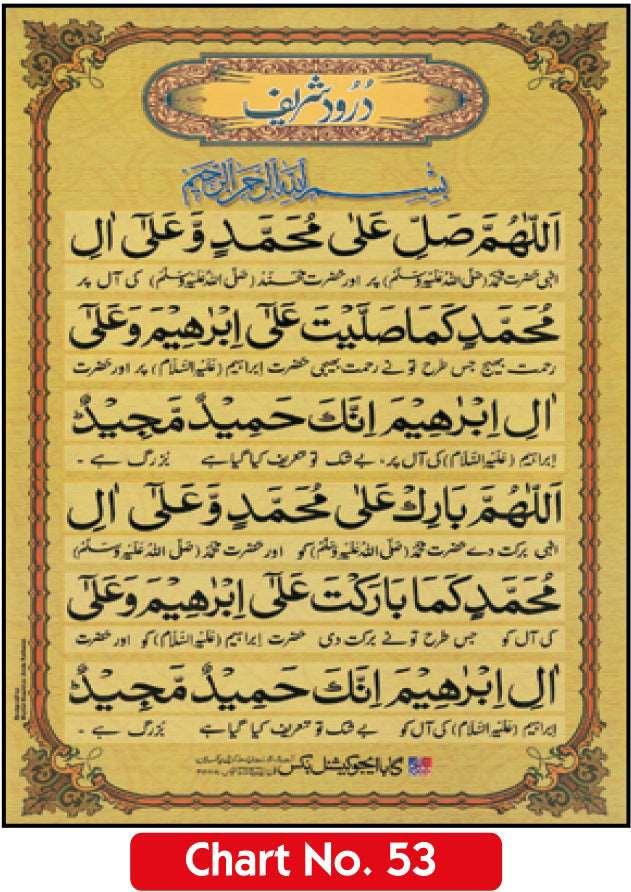 دُرُود شریف
بِسْمِ اللهِ الرَّحْمٰنِ الرَّحِيْمِ
اَللّٰهُمَّ صَلِّ عَلٰى مُحَمَّدٍ وَّعَلٰٓى اٰلِ
الٰہی حضرت مُحَمَّدْ (صَلَّی اللہُ عَلَیْہِ وَسَلَّمْ) پر اور حضرت مُحَمَّدْ (صَلَّی اللہُ عَلَیْہِ وَسَلَّمْ) کی آل پر
مُحَمَّدٍ كَمَا صَلَّيْتَ عَلٰٓى اِبْرٰهِيْمَ وَعَلٰٓى
رحمت بھیج جس طرح تو نے رحمت بھیجی حضرت اِبراہیم (عَلَیْہِ السَّلَام) پر اور حضرت
اٰلِ اِبْرٰهِيْمَ اِنَّكَ حَمِيْدٌ مَّجِيْدٌ
اِبراہیم (عَلَیْہِ السَّلَام) کی آل پر، بے شک تو تعریف کیا گیا ہے بُزرگ ہے ۔
اَللّٰهُمَّ بَارِكْ عَلٰى مُحَمَّدٍ وَّعَلٰٓى اٰلِ
الٰہی برکت دے حضرت مُحَمَّدْ (صَلَّی اللہُ عَلَیْہِ وَسَلَّمْ) کو اور حضرت مُحَمَّدْ (صَلَّی اللہُ عَلَیْہِ وَسَلَّمْ)
مُحَمَّدٍ كَمَا بَارَكْتَ عَلٰٓى اِبْرٰهِيْمَ وَعَلٰٓى
کی آل کو جس طرح تو نے برکت دی حضرت اِبراہیم (عَلَیْہِ السَّلَام) کو اور حضرت
اٰلِ اِبْرٰهِيْمَ اِنَّكَ حَمِيْدٌ مَّجِيْدٌ
اِبراہیم (عَلَیْہِ السَّلَام) کی آل کو بے شک تو تعریف کیا گیا ہے بُزرگ ہے ۔
گابا ایجوکیشنل بکس
Chart No. 53